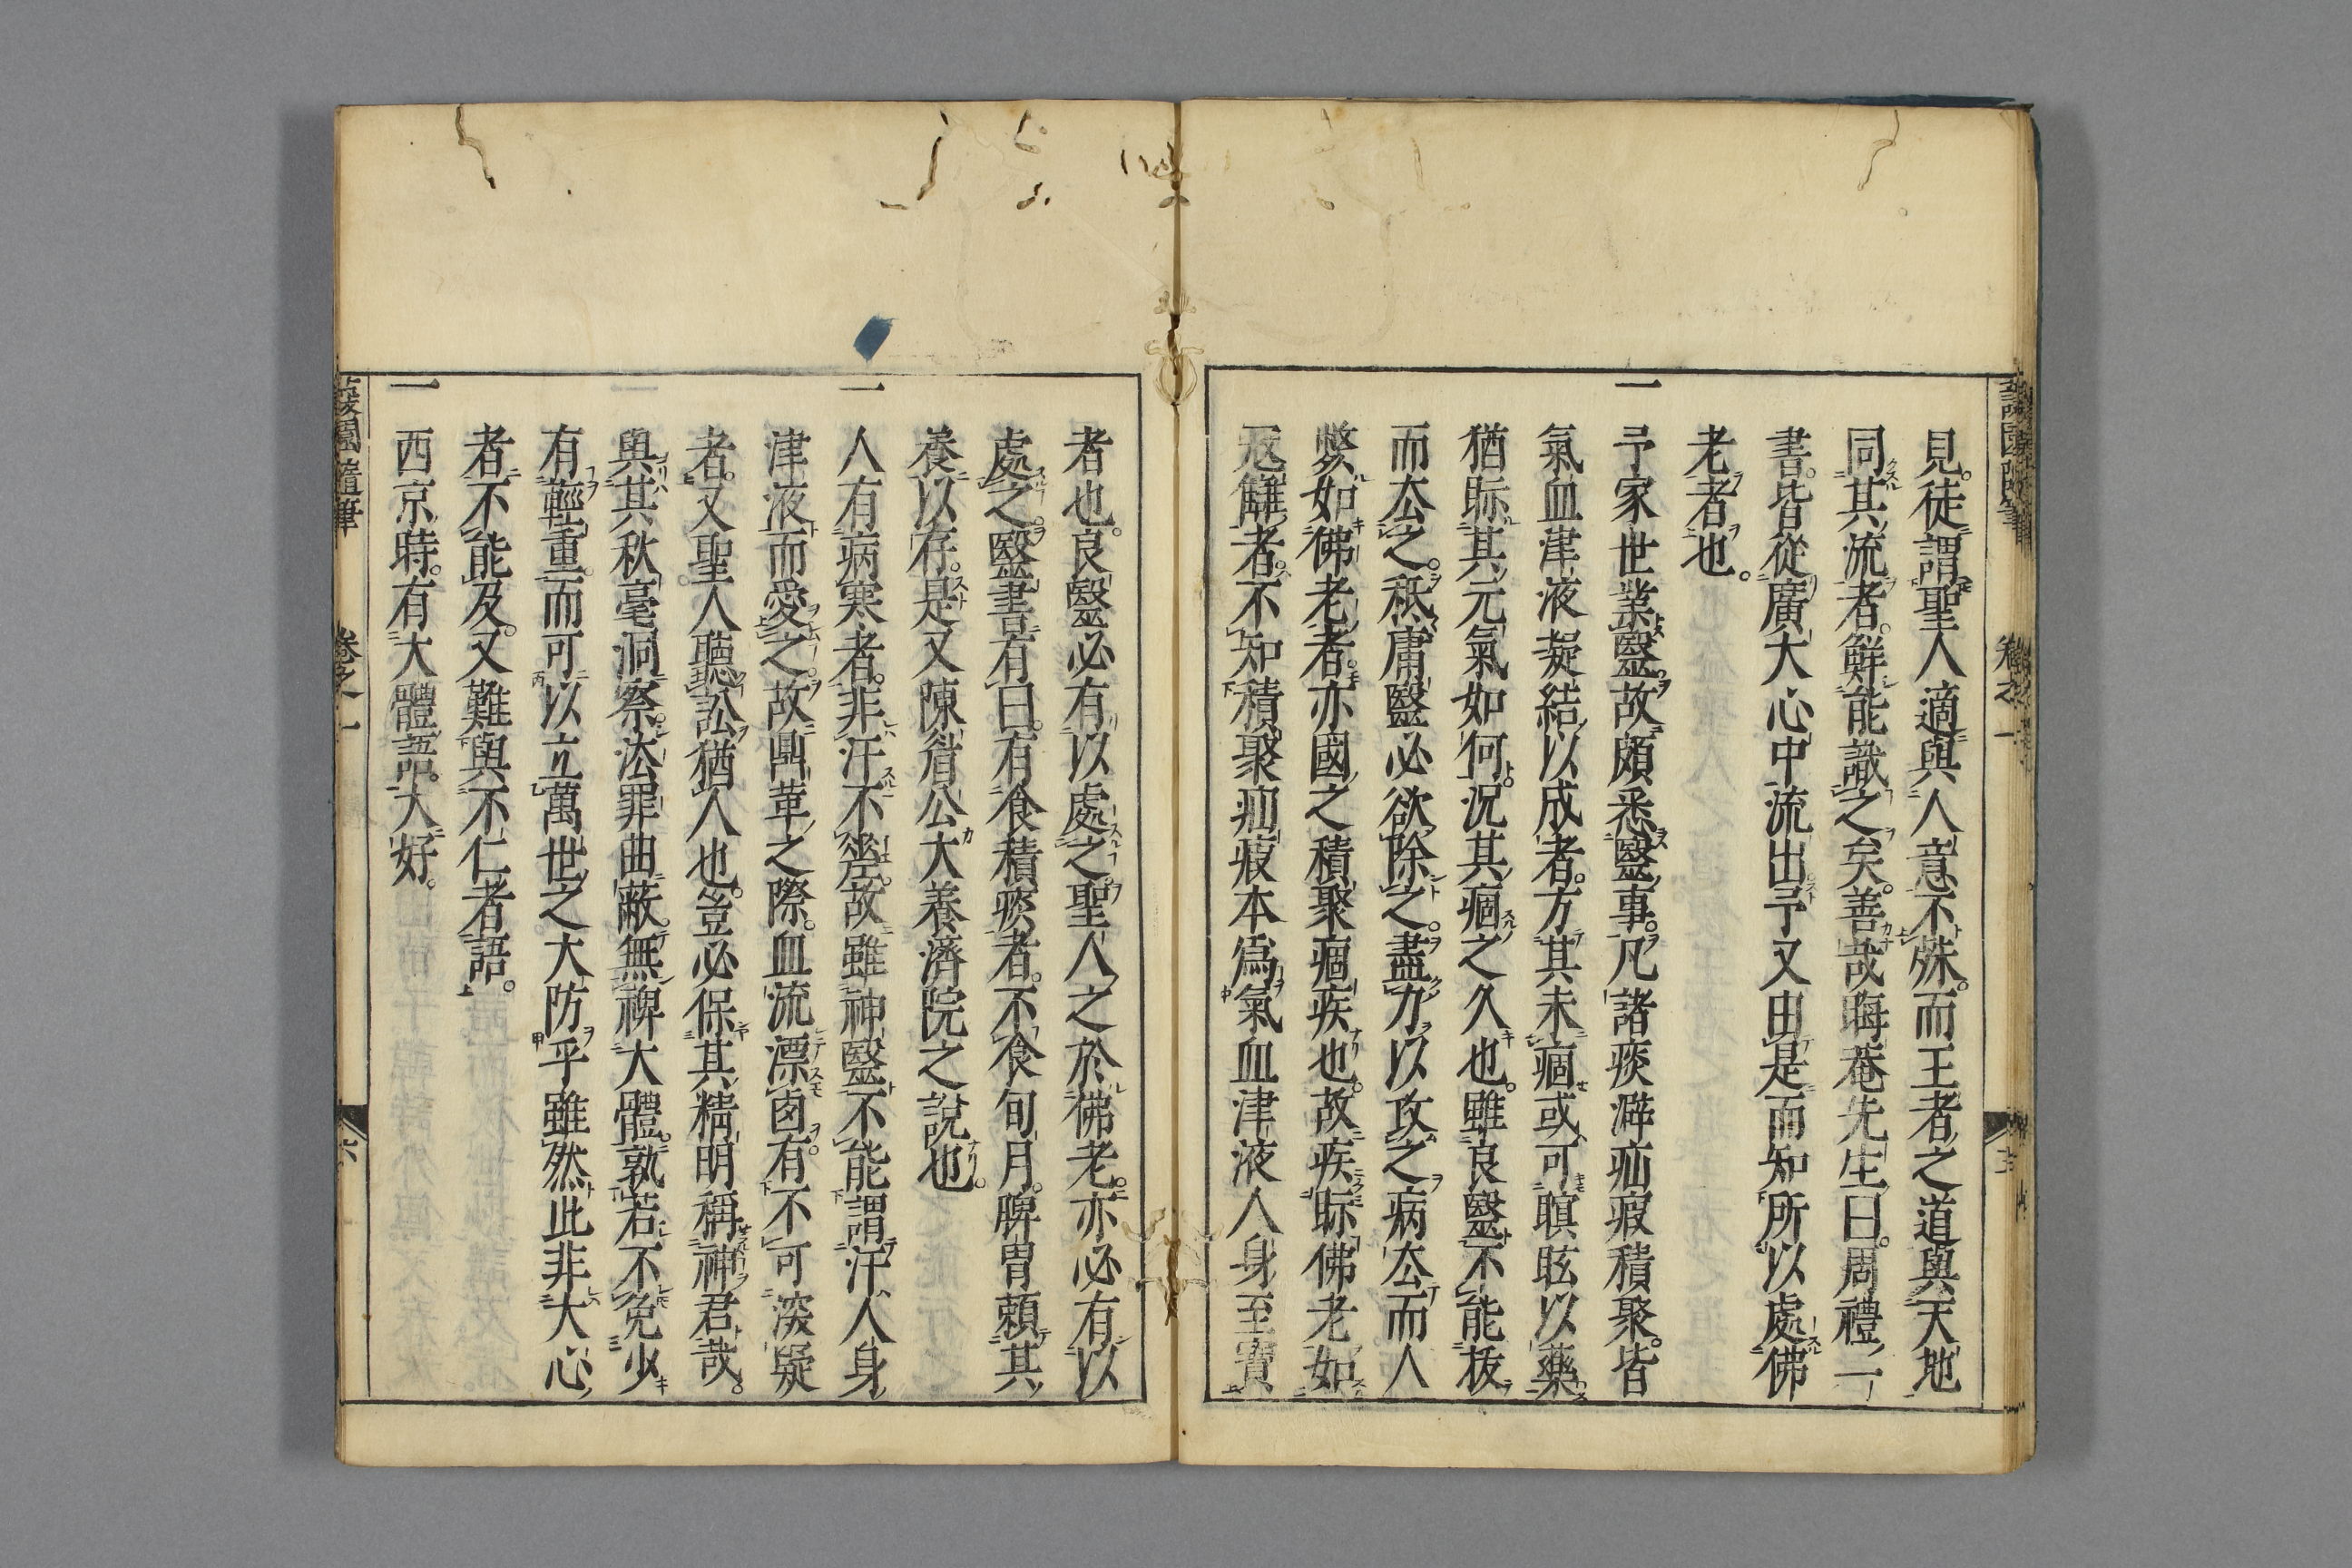 見。徒謂聖人適與人意不殊。而王者之道與天地
同其流者。鮮能識之矣。善哉晦菴先生曰。周禮一
書。皆從廣大心中流出。予又由是而知所以處佛
老者也。
一予家世業醫。故頗悉醫事。凡諸痰澼疝瘕積聚。皆
氣血津液凝結以成者。方其未痼或可瞑眩以藥
猶眎其元氣如何。況其痼之久也。雖良醫不能抜
而厺之。秪庸醫必欲除之。盡力以攻之病厺而人
斃如佛老者。亦國之積聚痼疾也。故疾眎佛老如
冦讎者。不知積聚疝瘕本爲氣血津液人身至寶
者也。良醫必有以處之。聖人之於佛老。亦必有以
處之。醫書有曰。有食積痰者。不食旬月。脾胃頼其
養以存。是又陳眉公大養濟院之說也。
一人有病寒者。非汗不瘥。故雖神醫不能謂汗人身
津液而愛之。故鼎革之際。血流漂鹵。有不可深疑
者。又聖人聽訟猶人也。豈必保其精明稱神君哉。
與其秋毫洞察。㳒罪曲蔽。無裨大體。孰若不免少
有輕重。而可以立萬世之大防乎雖然此非大心
者不能及。又難與不仁者語。
一西京時。有大體語。大好。
蘐園隨筆
卷之一
六